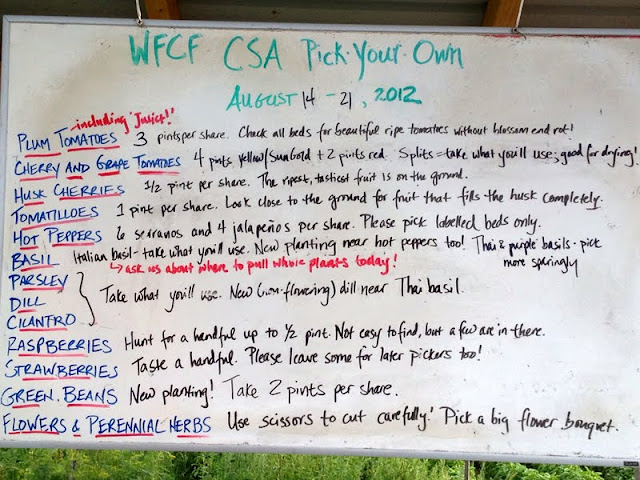 WFCF CSA Pick-Your-Own
AUGUST 14 - 21, 2012
-including 'Juliet!'
PLUM TOMATOES 3 pints per share. Check all beds for beautiful ripe tomatoes without blossom end rot!
CHERRY AND GRAPE TOMATOES 4 pints yellow/SunGold + 2 pints red. Splits = take what you'll use; good for drying!
HUSK CHERRIES 1/2 pint per share. The ripest, tastiest fruit is on the ground.
TOMATILLOES 1 pint per share. Look close to the ground for fruit that fills the husk completely.
HOT PEPPERS 6 serranos and 4 jalapeños per share. Please pick labelled beds only.
BASIL Italian basil - take what you'll use. New planting near hot peppers too! Thai & purple basils - pick more sparingly
↳ ask us about where to pull whole plants today!
PARSLEY
DILL Take what you'll use. New (non-flowering) dill near Thai basil.
CILANTRO
RASPBERRIES Hunt for a handful up to 1/2 pint. Not easy to find, but a few are in there.
STRAWBERRIES Taste a handful. Please leave some for later pickers too!
GREEN BEANS New planting! Take 2 pints per share.
FLOWERS & PERENNIAL HERBS Use scissors to cut carefully! Pick a big flower bouquet.